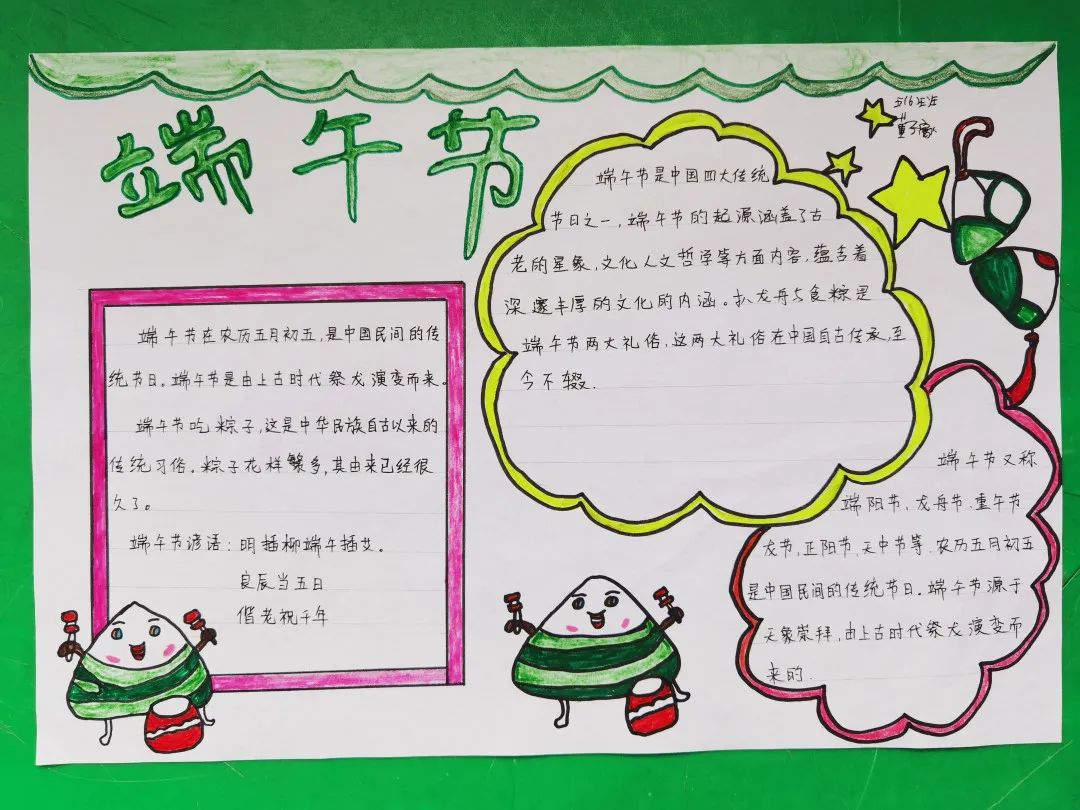 端午节
516班
董子
端午节在农历五月初五,是中国民间的传
统节日。端午节是由上古时代祭龙演变而来。
端午节吃粽子,这是中华民族自古以来的
传统习俗。粽子花样繁多,其由来已经很
久了。
端午节谚语:明插柳端午插艾。
良辰当五日
偕老祝千年
端午节是中国四大传统
节日之一,端午节的起源涵盖了古
老的星象,文化人文哲学等方面内容,蕴含着
深邃丰厚的文化的内涵。扒龙舟与食粽是
端午节两大礼俗,这两大礼俗在中国自古传承,至
今不辍.
端午节又称
端阳节,龙舟节,重午节
龙节,正阳节,天中节等.农历五月初五
是中国民间的传统节日。端午节源于
天象崇拜,由上古时代祭龙演变而
来的.